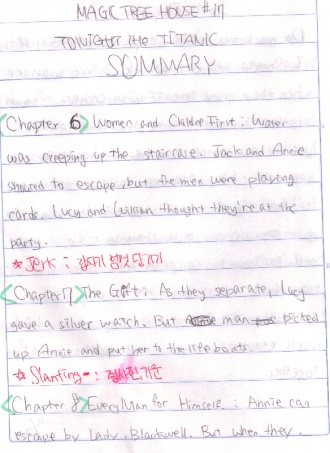 MAGIC TREE HOUSE #17
TONIGHT ON THE TITANIC
SUMMARY
<Chapter 6> Women and Childre First : Water
was creeping up the staircase. Jack and Annie
shoured to escape, but the men were playing
cards. Lucy and William thought they're at the
party.
* Jerk : 갑자기 
<Chapter 7> The Gift : As they separate, Lucy
gave a silver watch. But man picted
up Annie and put her to the life boats.
* Slanting : 경사진
<Chapter 8> Every Man for Himself. : Annie can
escape by lady. Blackwell. But when they